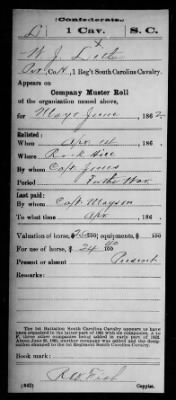 (Confederate.)
1 Cav. S. C.
W. J.
Co. H, 1 Reg't South Carolina Cavalry.
Appears on
Company Muster Roll
of the organization named above,
for May & June, 186 2.
Enlisted:
When Apr 14, 186
Where Rock Hill
By whom Capt Jones
Period For the War
Last paid:
By whom Capt Mayson
To what time Apr, 186
Valuation of horse, $ /100; equipments, $ /100
For use of horse, $ 24 /100
Present or absent Present
Remarks:
The 1st Battalion South Carolina Cavalry appears to have
been organized in the latter part of 1861 with six companies, A to
F; three other companies being added in early part of 1862.
About June 25, 1862, another company was added and the designation
changed to the 1st Regiment South Carolina Cavalry.
Book mark:
(642)
Copyist.